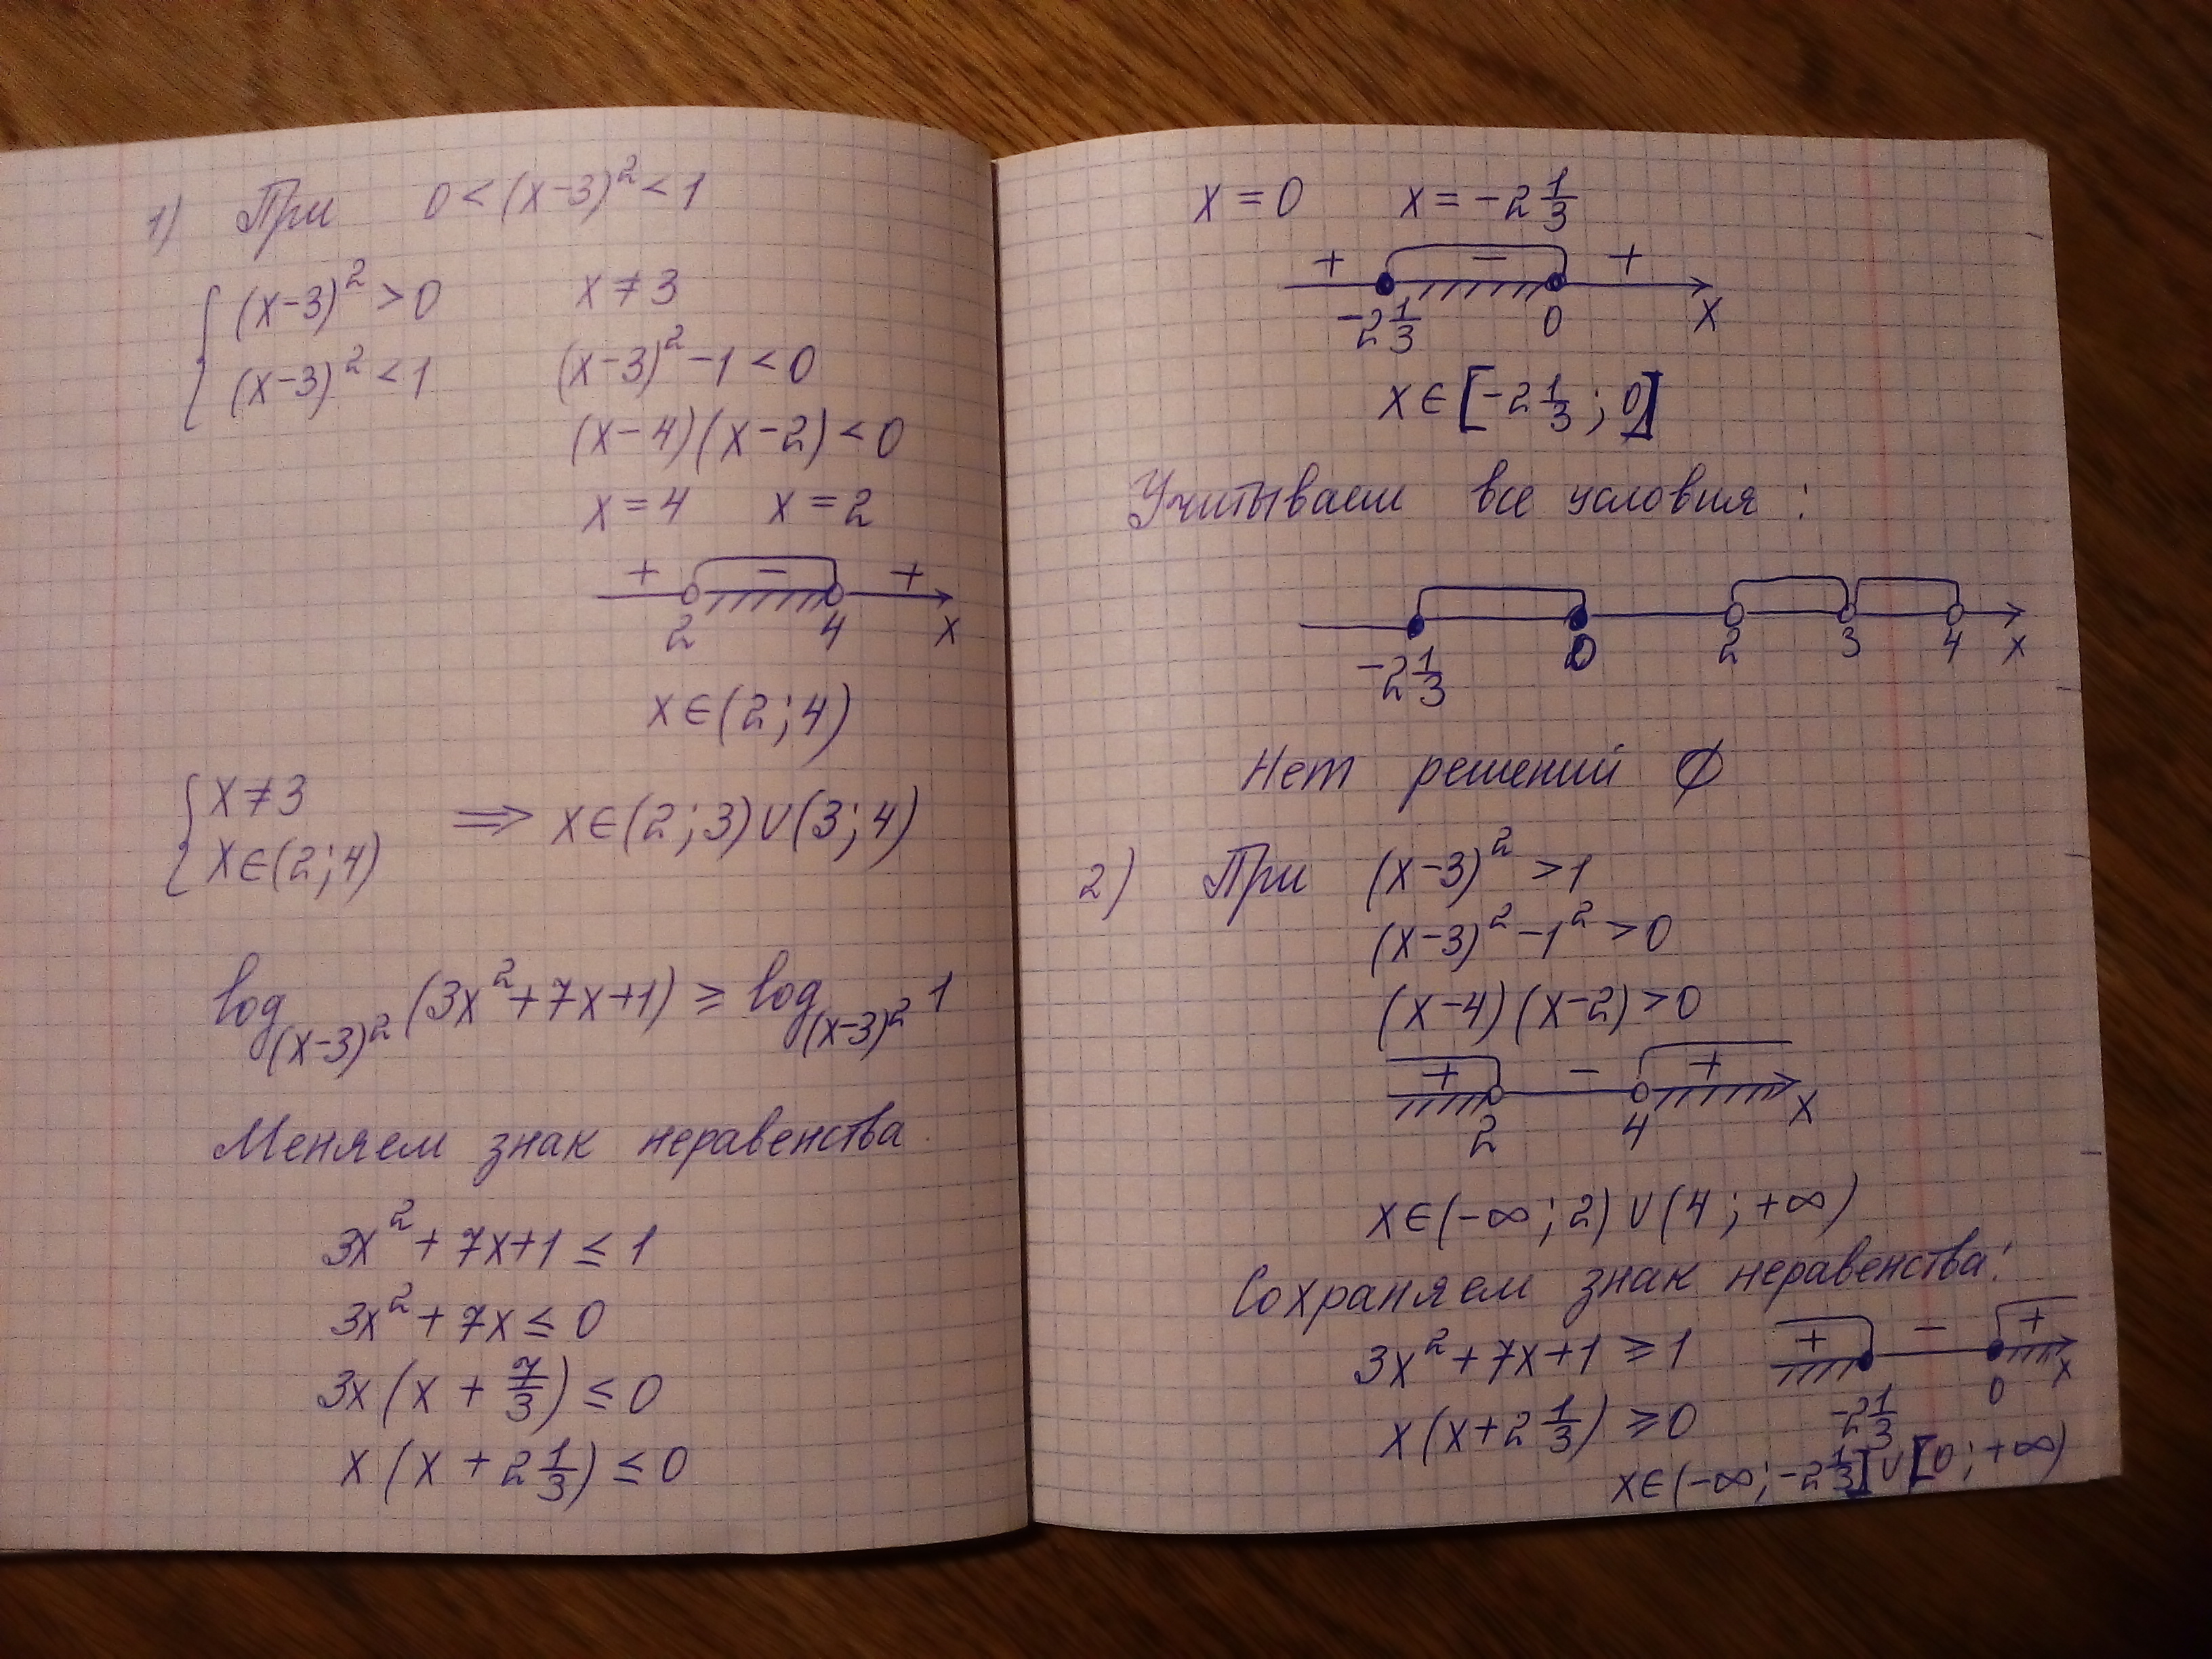 1) При 0 < (x-3)² < 1
{ (x-3)² > 0 x ≠ 3
(x-3)² < 1 (x-3)² - 1 < 0
(x-4)(x-2) < 0
x = 4 x = 2
+ - +
2 4 x
x ∈ (2; 4)
{ x ≠ 3
x ∈ (2; 4) ⇒ x ∈ (2; 3) ∪ (3; 4)
log_(x-3)² (3x² + 7x + 1) ≥ log_(x-3)² 1
Меняем знак неравенства
3x² + 7x + 1 ≤ 1
3x² + 7x ≤ 0
3x (x + 7/3) ≤ 0
x (x + 2 1/3) ≤ 0
x = 0 x = -2 1/3
+ - +
-2 1/3 0 x
x ∈ [-2 1/3; 0]
Учитываем все условия:
-2 1/3 0 2 3 4 x
Нет решений ∅
2) При (x-3)² > 1
(x-3)² - 1² > 0
(x-4)(x-2) > 0
+ - +
2 4 x
x ∈ (-∞; 2) ∪ (4; +∞)
Сохраняем знак неравенства:
3x² + 7x + 1 ≥ 1
x (x + 2 1/3) ≥ 0
+ - +
-2 1/3 0 x
x ∈ (-∞; -2 1/3] ∪ [0; +∞)